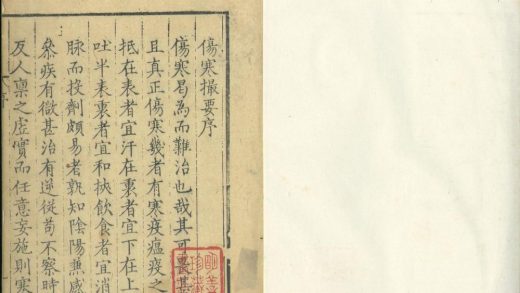 傷寒撮要序
傷寒曷為而難治也哉其可畏甚
且真正傷寒幾者有寒疫瘟疫之
抵在表者宜汗在裏者宜下在上
吐半表裏者宜和挾飲食者宜消
脉而投劑頗易者孰知陰陽無感
叅疾有微甚治有逆從苟不察時
及人稟之虛實而任意妄施則寒